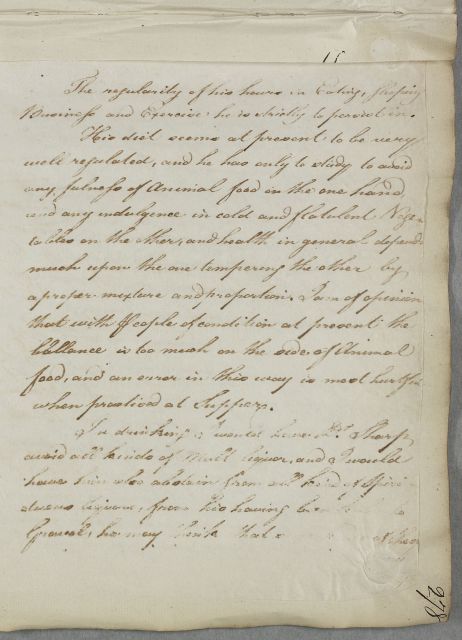 11
The regularity of his hours in Eating, sleeping
Business and Exercise he is strictly to persist in.
His diet seems at present to be very
well regulated, and he has only to study to avoid
any fulness of Animal food on the one hand
and any indulgence in cold and flatulent Vege-
tables on the other, and health in general depends
much upon the one tempering the other by
a proper mixture and proportion. I am of opinion
that with People of condition at present the
ballance is too much on the side of Animal
food, and an error in this way is most hurtful
when practised at Supper.
In drinking, I would have Mr. Sharp
avoid all kinds of Malt liquor, and I would
have him also abstain from all kinds of Spiri-
tuous liquors, from his having been
Gravel, he may think that
278